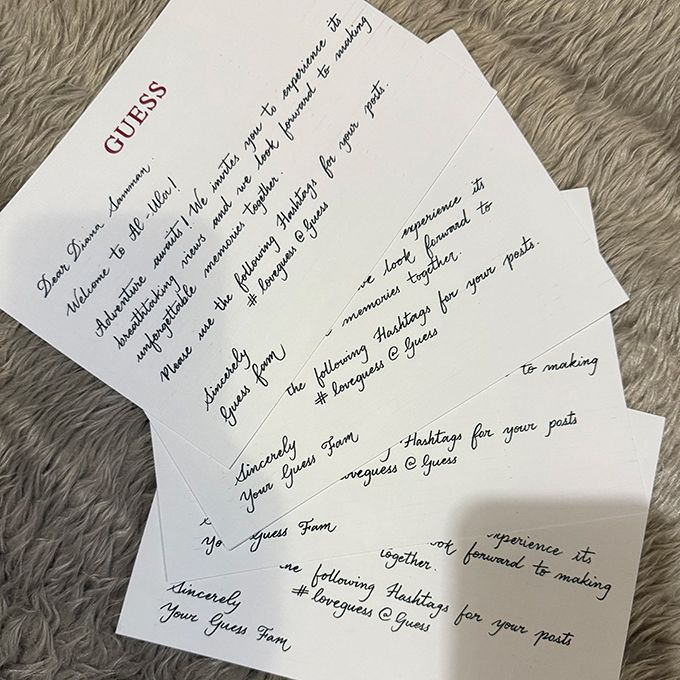 GUESS
Dear Diana Samman.
Welcome to Al-Ula!
Adventure awaits! We invites you to experience its
breathtaking views and we look forward to making
unforgettable memories together.
Please use the following Hashtags for your posts.
# loveguess @ Guess
Sincerely
Guess Fam
experience its
look forward to
memories together.
the following Hashtags for your posts.
# loveguess @ Guess
Sincerely
Your Guess Fam
to making
Hashtags for your posts
@ Guess
Guess Fam
its
forward to making
following Hashtags for your posts
# loveguess @ Guess
Sincerely
Your Guess Fam